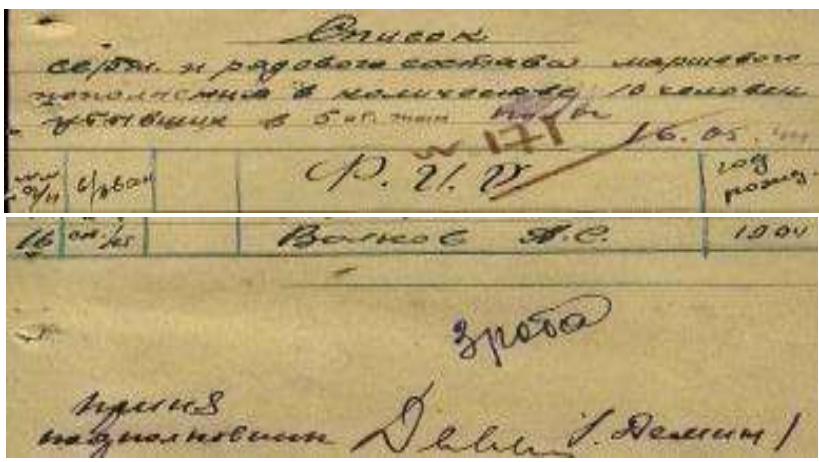 Список
серж. и рядового состава маршевого
пополнения в количестве 10 человек
убывших в 5
№ 171
16.05.44
№№ п/п с/зван Ф. И. О год рожд.
16 Волков А.С. 1904
3 рота
принял
подполковник (Демин)